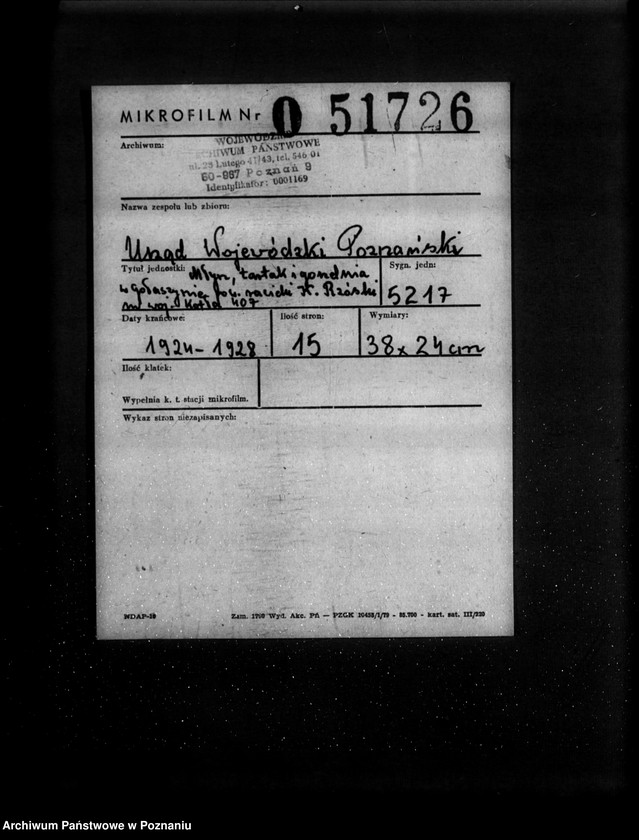 MIKROFILM Nr 0 51726
Archiwum:
WOJEWÓDZKIE
ARCHIWUM PAŃSTWOWE
ul. 23 Lutego 41/43, tel. 546-01
60-967 Poznań 9
Identyfikator: 0001169
Nazwa zespołu lub zbioru:
Urząd Wojewódzki Poznański
Tytuł jednostki: Młyn, tartak i
w Gołaszynie pow. rawicki K.
nr woj. kotła 407
Sygn. jedn:
5217
Daty krańcowe:
1924-1928
Ilość stron:
15
Wymiary:
38x24cm
Ilość klatek:
Wypełnia k. t. stacji mikrofilm.
Wykaz stron niezapisanych:
NDAP-59
Zam. 1700 Wyd. Akc. Pń — PZGK 10452/I/79 - 85.700 - kart. sat. III/220
Archiwum Państwowe w Poznaniu